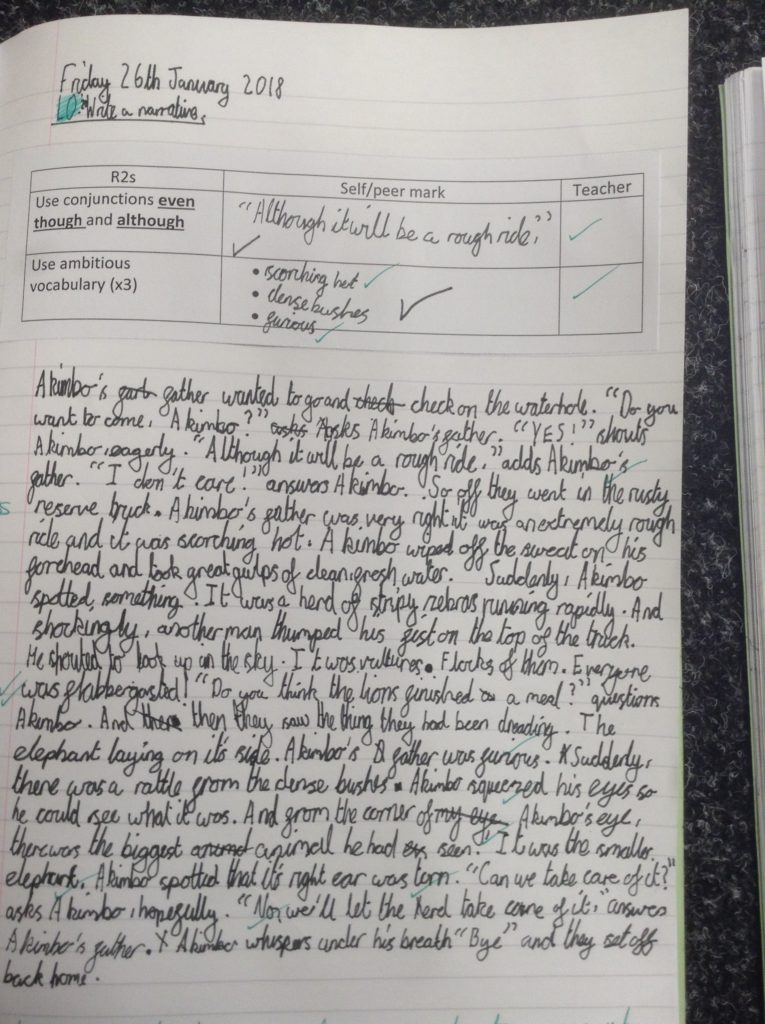 Friday 26th January 2018
LO: Write a narrative.
R2s Self/peer mark Teacher
Use conjunctions even though and although
"Although it will be a rough ride,"
Use ambitious vocabulary (x3)
• scorching hot
• dense bushes
• furious
Akimbo's father wanted to go and check check on the waterhole. "Do you
want to come, Akimbo?" asks Asks Akimbo's father. "YES!" shouts
Akimbo, eagerly. "Although it will be a rough ride," adds Akimbo's
father. "I don't care!" answers Akimbo. So off they went in the rusty
reserve truck. Akimbo's father was very right it was an extremely rough
ride and it was scorching hot. Akimbo wiped off the sweat on his
forehead and took great gulps of clean, fresh water. Suddenly, Akimbo
spotted, something. It was a herd of stripy zebras running rapidly. And
shockingly, another man thumped his fist on the top of the truck.
He shouted to look up in the sky. It was vultures. Flocks of them. Everyone
was flabbergasted! "Do you think the lions finished a meal?" questions
Akimbo. And there then they saw the thing they had been dreading. The
elephant laying on it's side. Akimbo's father was furious. Suddenly,
there was a rattle from the dense bushes. Akimbo squeezed his eyes so
he could see what it was. And from the corner of my eye, Akimbo's eye,
there was the biggest animall he had seen. It was the smaller
elephant. Akimbo spotted that it's right ear was torn. "Can we take care of it?"
asks Akimbo, hopefully. "No, we'll let the herd take care of it," answers
Akimbo's father. Akimbo whispers under his breath "Bye" and they set off
back home.